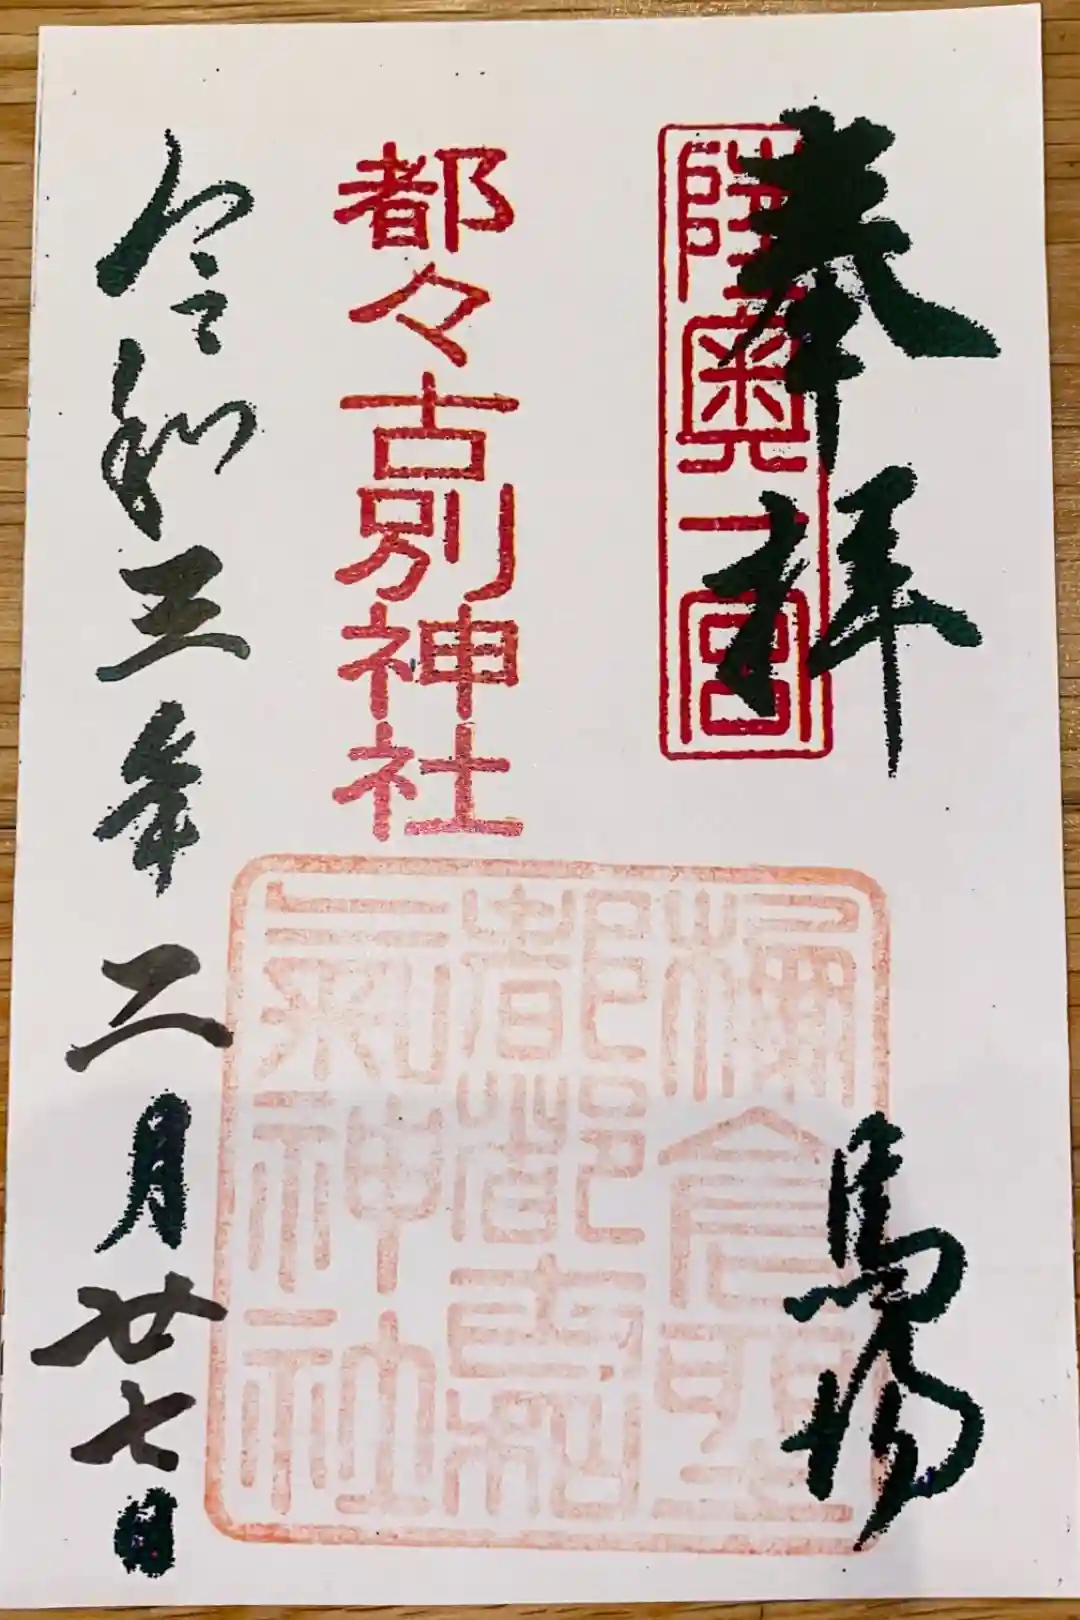 奉拝
陸奥一宮
馬場
都々古別神社
令和三年二月廿七日